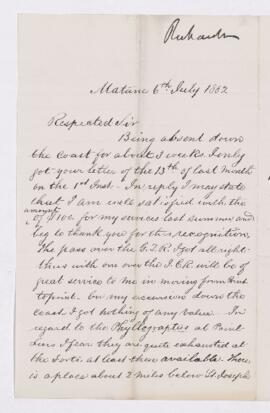 Richardson
Matane 6th July 1882
Respected Sir
Being absent down
the coast for about 3 weeks I only
got your letter of the 13th of last month
on the 1st Inst. In reply I may state
that I am well satisfied with the
amount
of $100. for my services last summer and
beg to thank you for this recognition.
The pass over the G.T.R. I got all right
this with one over the I.C.R. will be of
great service to me in moving from point
to point. On my excursion down the
coast I got nothing of any value. In
regard to the Phyllograpties at Point
Levis I fear they are quite exhausted at
the Forts. at least them available. There
is a place about 2 miles below St. Joseph